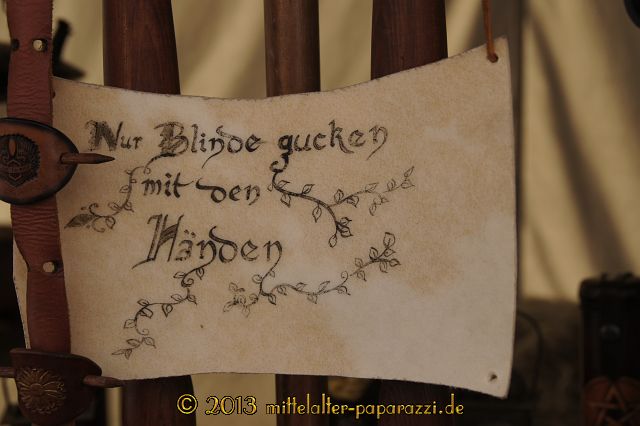 Nur Blinde gucken
mit den
Händen
© 2013 mittelalter-paparazzi.de